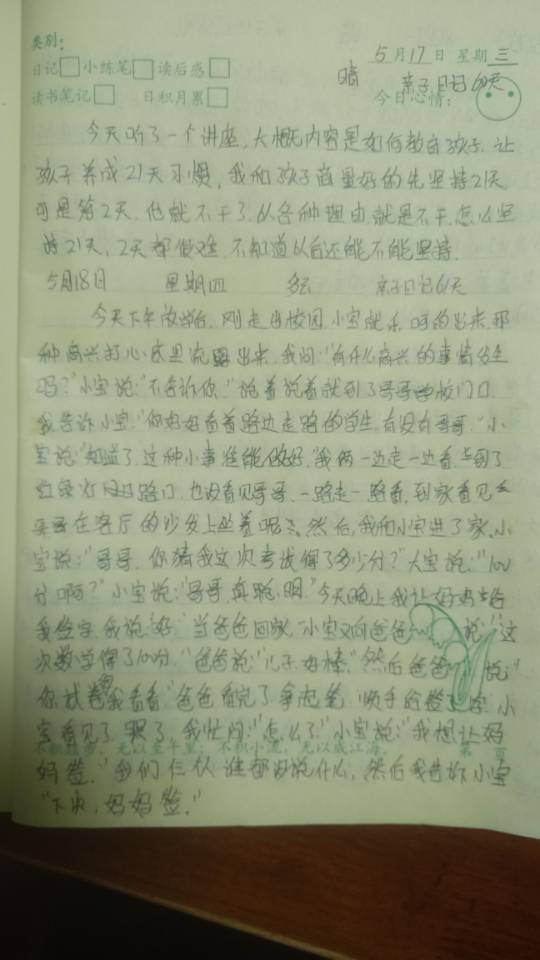 类别：
5月17日 星期三
日记 小练笔 读后感
晴 亲子日记60天
读书笔记 日积月累 今日心情：
今天听了一个讲座，大概内容是如何教育孩子，让
孩子养成21天习惯，我和孩子商量好的先坚持21天，
可是第2天，他就不干了，以各种理由，就是不干，怎么坚
持21天，2天都做难，不知道以后还能不能坚持。
5月18日 星期四 多云 亲子日记61天
今天下午放学后，刚走出校园，小宝就乐呵呵的出来，那
种高兴打心底里流露出来，我问：“有什么高兴的事情发生
吗？”小宝说：“不告诉你。”说着说着就到了哥哥的校门口，
我告诉小宝：“你好好看着路边走路的学生，有没有哥哥。”小
宝说：“知道了，这种小事谁能做好，”我两一边走一边看，走到了
红绿灯路口，也没看见哥哥，一路走一路看，到家看见
哥哥在客厅的沙发上坐着呢，然后，我和小宝进了家，小
宝说：“哥哥，你猜我这次考试得了多少分？”大宝说：“100
分啊？”小宝说：“哥哥，真聪明。”今天晚上我让好妈妈给
我签字，我说：“好”当爸爸回家，小宝又向爸爸说：“这
次数学得了100分。”爸爸说：“儿子，好棒。”然后爸爸说：“
你试卷我看看，”爸爸看完了，拿起笔，顺手的签上字，小
宝看见了，哭了，我忙问：“怎么了？”小宝说：“我想让好
不积跬步，无以至千里；不积小流，无以成江海。 第 页
妈签。”我们仨人谁都没说什么，然后我告诉小宝
“下次，妈妈签。”